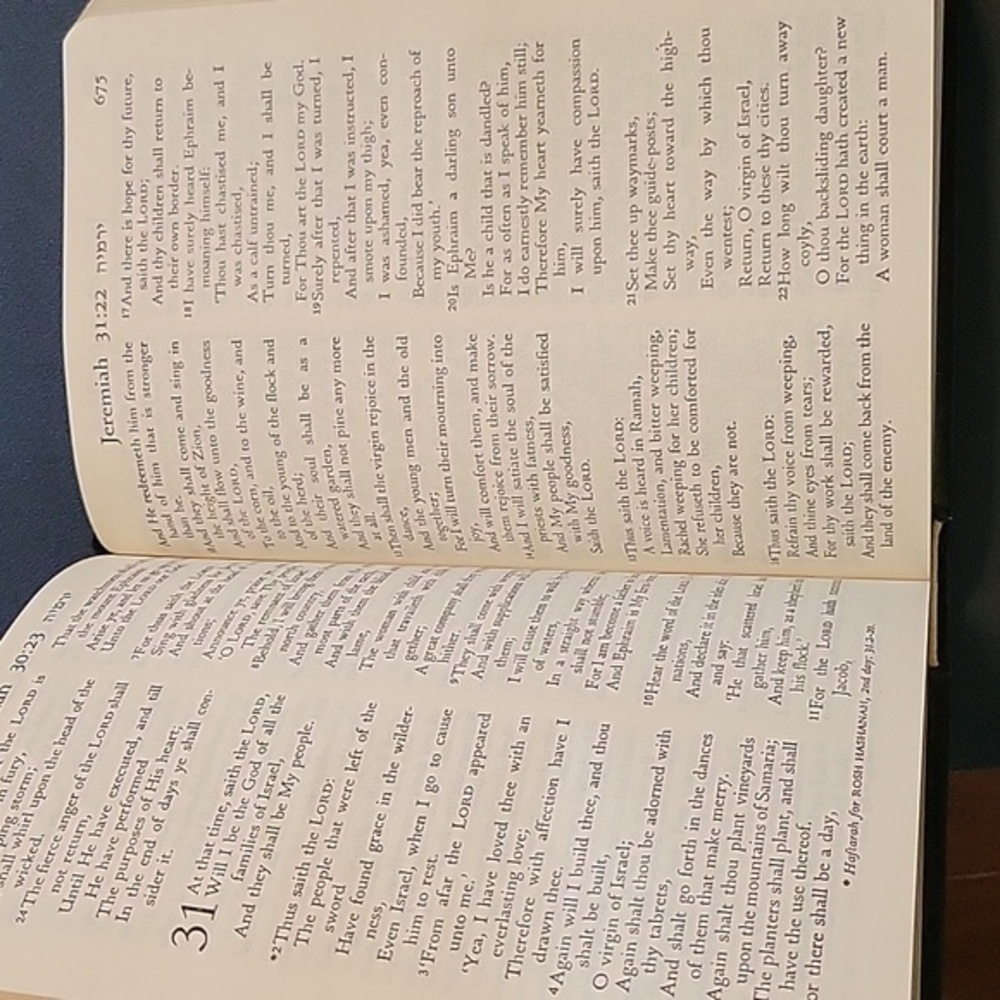 30:23 ירמיה
the LORD is
in fury,
ping storm;
shall whirl upon the head of the
wicked.
24 The fierce anger of the LORD shall
not return,
Until He have executed, and till
He have performed
The purposes of His heart;
In the end of days ye shall con-
sider it.
31 At that time, saith the LORD,
Will I be the God of all the
families of Israel,
And they shall be My people.
*2 Thus saith the LORD:
The people that were left of the
sword
Have found grace in the wilder-
ness,
Even Israel, when I go to cause
him to rest.
3 'From afar the LORD appeared
unto me.'
'Yea, I have loved thee with an
everlasting love;
Therefore with affection have I
drawn thee.
4 Again will I build thee, and thou
shalt be built,
O virgin of Israel;
Again shalt thou be adorned with
thy tabrets,
And shalt go forth in the dances
of them that make merry.
Again shalt thou plant vineyards
upon the mountains of Samaria;
The planters shall plant, and shall
have the use thereof.
or there shall be a day,
That the
Arise ye, and
Unto the LORD
7 For thus saith
Sing with gladness
And shout at the
tions;
Announce ye,
'O LORD,
The remnant of
8 Behold, I will bring
north country,
And gather them
most parts of the
And with them the
lame,
The woman with child
that travaileth with
gether;
A great company shall
hither.
9 They shall come with
And with supplications
them;
I will cause them to walk
of waters,
In a straight way
shall not stumble;
For I am become a father
And Ephraim is My
10 Hear the word of the
nations,
And declare it in the isles
and say:
'He that scattered
gather him,
And keep him, as a
his flock.'
11 For the LORD hath
Jacob,
* Haftarah for ROSH HASHANAH, 2nd day: 31.2-20.
Jeremiah 31:22 ירמיה 675
And He redeemeth him from the
hand of him that is stronger
than he.
12 And they shall come and sing in
the height of Zion,
And shall flow unto the goodness
of the LORD,
To the corn, and to the wine, and
to the oil,
And to the young of the flock and
of the herd;
And their soul shall be as a
watered garden,
And they shall not pine any more
at all.
13 Then shall the virgin rejoice in the
dance,
And the young men and the old
together;
For I will turn their mourning into
joy,
And will comfort them, and make
them rejoice from their sorrow.
14 And I will satiate the soul of the
priests with fatness,
And My people shall be satisfied
with My goodness,
Saith the LORD.
15 Thus saith the LORD:
A voice is heard in Ramah,
Lamentation, and bitter weeping,
Rachel weeping for her children;
She refuseth to be comforted for
her children,
Because they are not.
16 Thus saith the LORD:
Refrain thy voice from weeping,
And thine eyes from tears;
For thy work shall be rewarded,
saith the LORD;
And they shall come back from the
land of the enemy.
17 And there is hope for thy future,
saith the LORD;
And thy children shall return to
their own border.
18 I have surely heard Ephraim be-
moaning himself:
'Thou hast chastised me, and I
was chastised,
As a calf untrained;
Turn thou me, and I shall be
turned,
For Thou art the LORD my God.
19 Surely after that I was turned, I
repented,
And after that I was instructed, I
smote upon my thigh;
I was ashamed, yea, even con-
founded,
Because I did bear the reproach of
my youth.'
20 Is Ephraim a darling son unto
Me?
Is he a child that is dandled?
For as often as I speak of him,
I do earnestly remember him still;
Therefore My heart yearneth for
him,
I will surely have compassion
upon him, saith the LORD.
21 Set thee up waymarks,
Make thee guide-posts;
Set thy heart toward the high-
way,
Even the way by which thou
wentest;
Return, O virgin of Israel,
Return to these thy cities.
22 How long wilt thou turn away
coyly,
O thou backsliding daughter?
For the LORD hath created a new
thing in the earth:
A woman shall court a man.